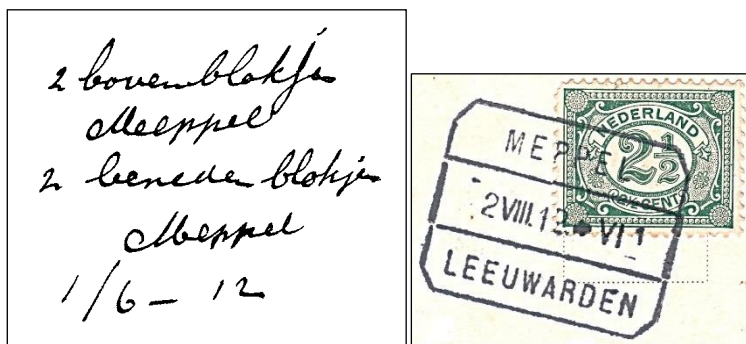 2 bovenblokjes
Meppel
2 beneden blokjes
Meppel
1/6 - 12
NEDERLAND
2½
MEPPEL
2VIII.12. VI 1
LEEUWARDEN